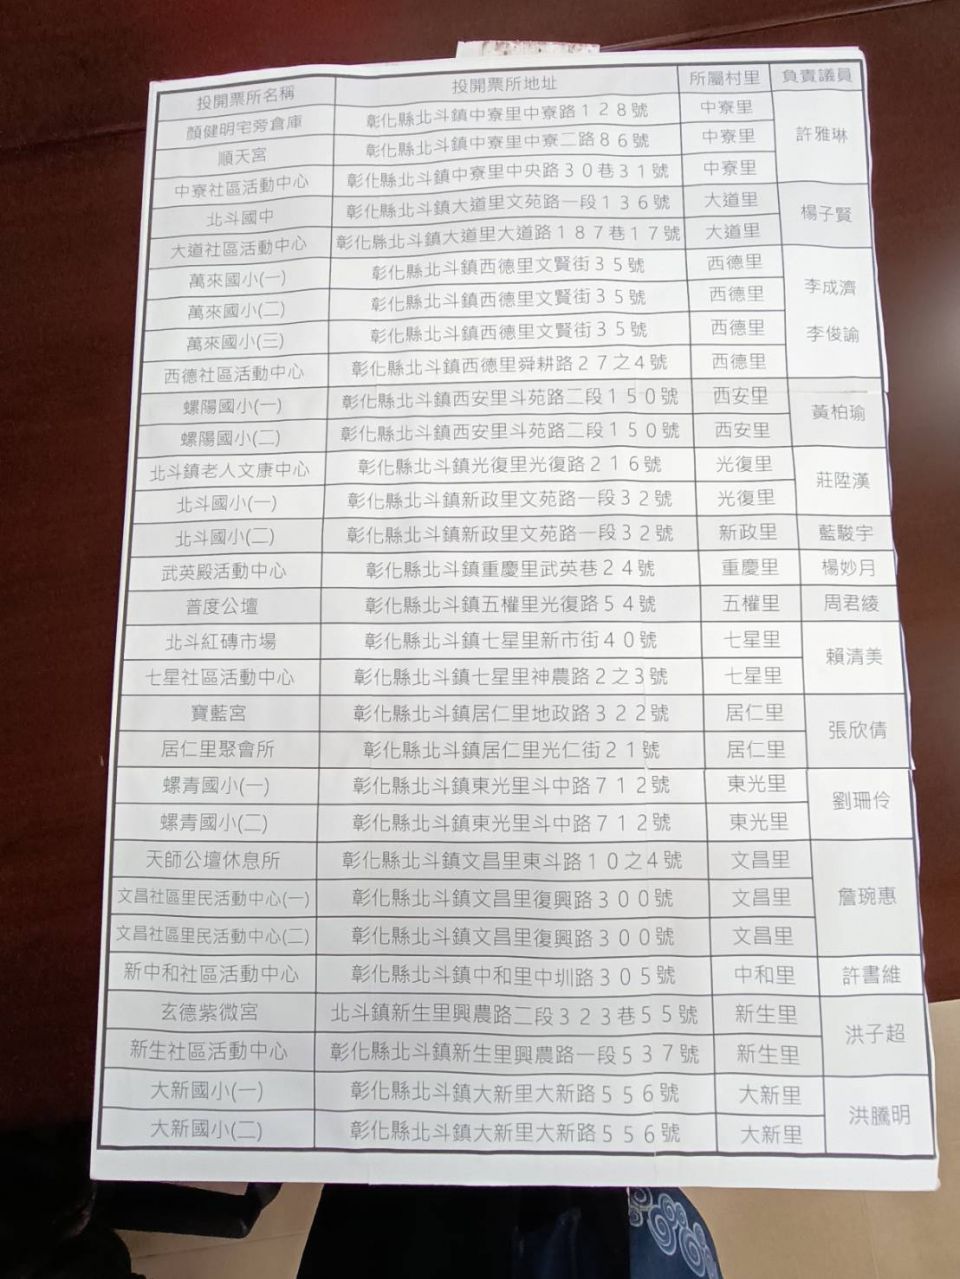 投開票所名稱 投開票所地址 所屬村里 負責議員
顏健明宅旁倉庫 彰化縣北斗鎮中寮里中寮路１２８號 中寮里
順天宮 彰化縣北斗鎮中寮里中寮二路８６號 中寮里 許雅琳
中寮社區活動中心 彰化縣北斗鎮中寮里中央路３０巷３１號 中寮里
北斗國中 彰化縣北斗鎮大道里文苑路一段１３６號 大道里 楊子賢
大道社區活動中心 彰化縣北斗鎮大道里大道路１８７巷１７號 大道里
萬來國小(一) 彰化縣北斗鎮西德里文賢街３５號 西德里
萬來國小(二) 彰化縣北斗鎮西德里文賢街３５號 西德里 李成濟
萬來國小(三) 彰化縣北斗鎮西德里文賢街３５號 西德里 李俊諭
西德社區活動中心 彰化縣北斗鎮西德里舜耕路２７之４號 西德里
螺陽國小(一) 彰化縣北斗鎮西安里斗苑路二段１５０號 西安里 黃柏瑜
螺陽國小(二) 彰化縣北斗鎮西安里斗苑路二段１５０號 西安里
北斗鎮老人文康中心 彰化縣北斗鎮光復里光復路２１６號 光復里 莊陞漢
北斗國小(一) 彰化縣北斗鎮新政里文苑路一段３２號 光復里
北斗國小(二) 彰化縣北斗鎮新政里文苑路一段３２號 新政里 藍駿宇
武英殿活動中心 彰化縣北斗鎮重慶里武英巷２４號 重慶里 楊妙月
普度公壇 彰化縣北斗鎮五權里光復路５４號 五權里 周君綾
北斗紅磚市場 彰化縣北斗鎮七星里新市街４０號 七星里 賴清美
七星社區活動中心 彰化縣北斗鎮七星里神農路２之３號 七星里
寶藍宮 彰化縣北斗鎮居仁里地政路３２２號 居仁里 張欣倩
居仁里聚會所 彰化縣北斗鎮居仁里光仁街２１號 居仁里
螺青國小(一) 彰化縣北斗鎮東光里斗中路７１２號 東光里 劉珊伶
螺青國小(二) 彰化縣北斗鎮東光里斗中路７１２號 東光里
天師公壇休息所 彰化縣北斗鎮文昌里東斗路１０之４號 文昌里
文昌社區里民活動中心(一) 彰化縣北斗鎮文昌里復興路３００號 文昌里 詹琬惠
文昌社區里民活動中心(二) 彰化縣北斗鎮文昌里復興路３００號 文昌里
新中和社區活動中心 彰化縣北斗鎮中和里中圳路３０５號 中和里 許書維
玄德紫微宮 北斗鎮新生里興農路二段３２３巷５５號 新生里 洪子超
新生社區活動中心 彰化縣北斗鎮新生里興農路一段５３７號 新生里
大新國小(一) 彰化縣北斗鎮大新里大新路５５６號 大新里 洪騰明
大新國小(二) 彰化縣北斗鎮大新里大新路５５６號 大新里